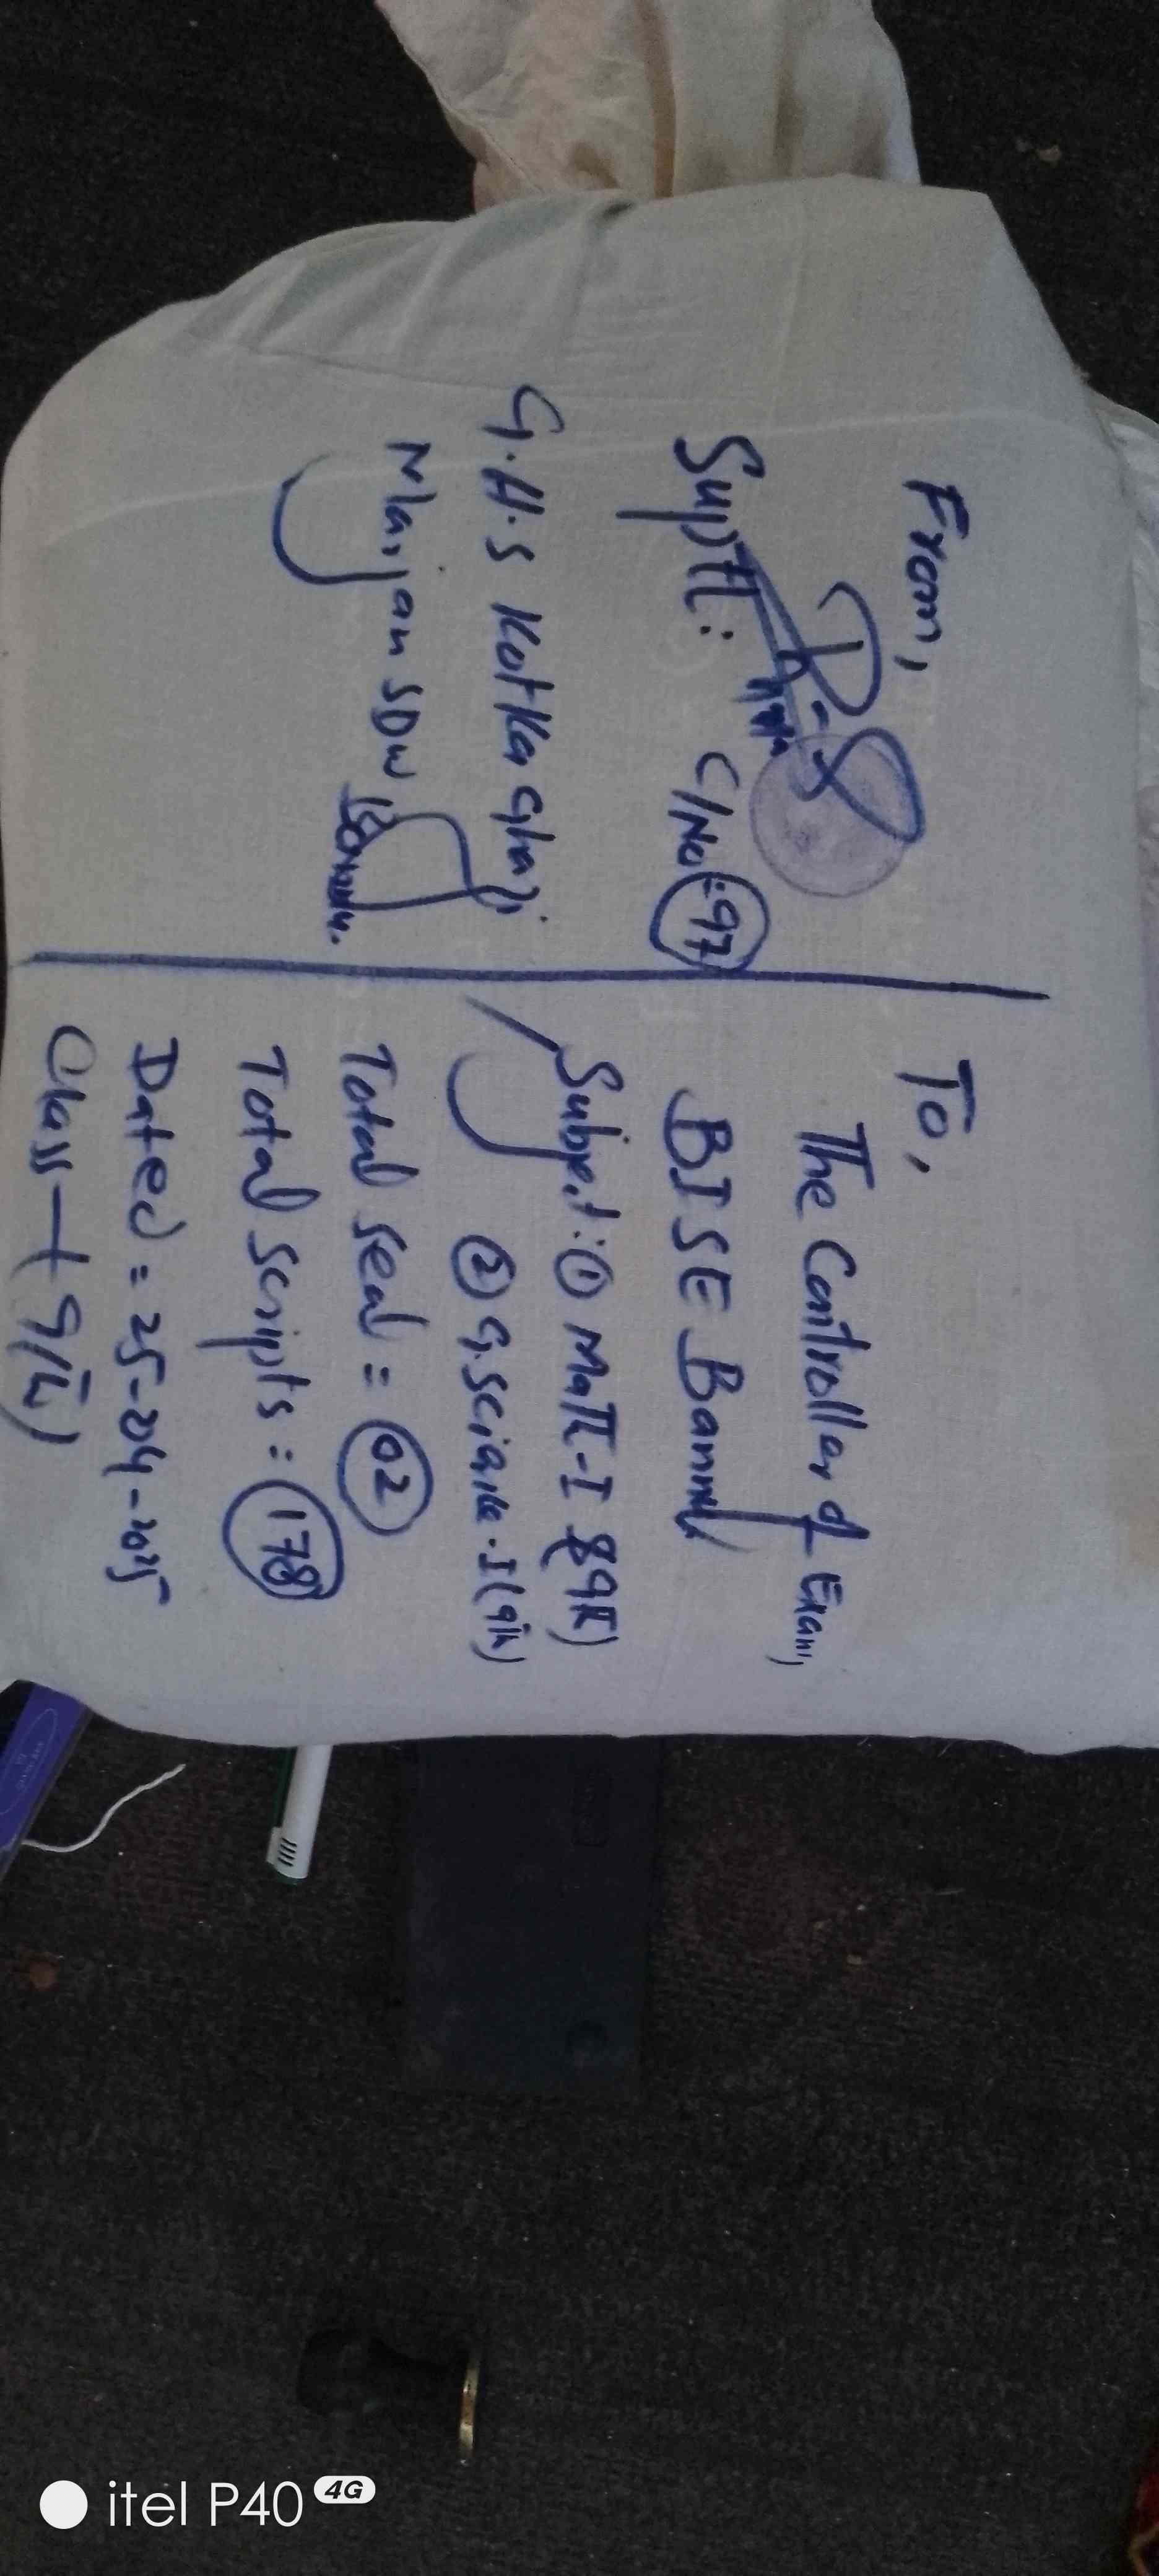 From,
Suptt: C/No = 97
G.H.S Kotka Ghazi
Marjan SDW Bannu.
To,
The Controller of Exam,
BISE Bannu
Subject: ① Math-I (9th)
② G.Science-I (9th)
Total Seal = 02
Total Scripts = 178
Dated = 25-04-2025
Class → 9th
itel P40 4G